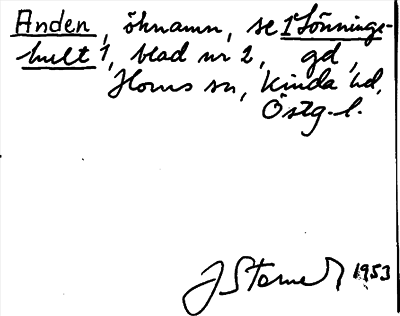 Anden, öknamn, se 1 Lönninge-
hult 1, blad nr 2, gd,
Horns sn, Kinda hd,
Östg. l.
J Sterner 1953